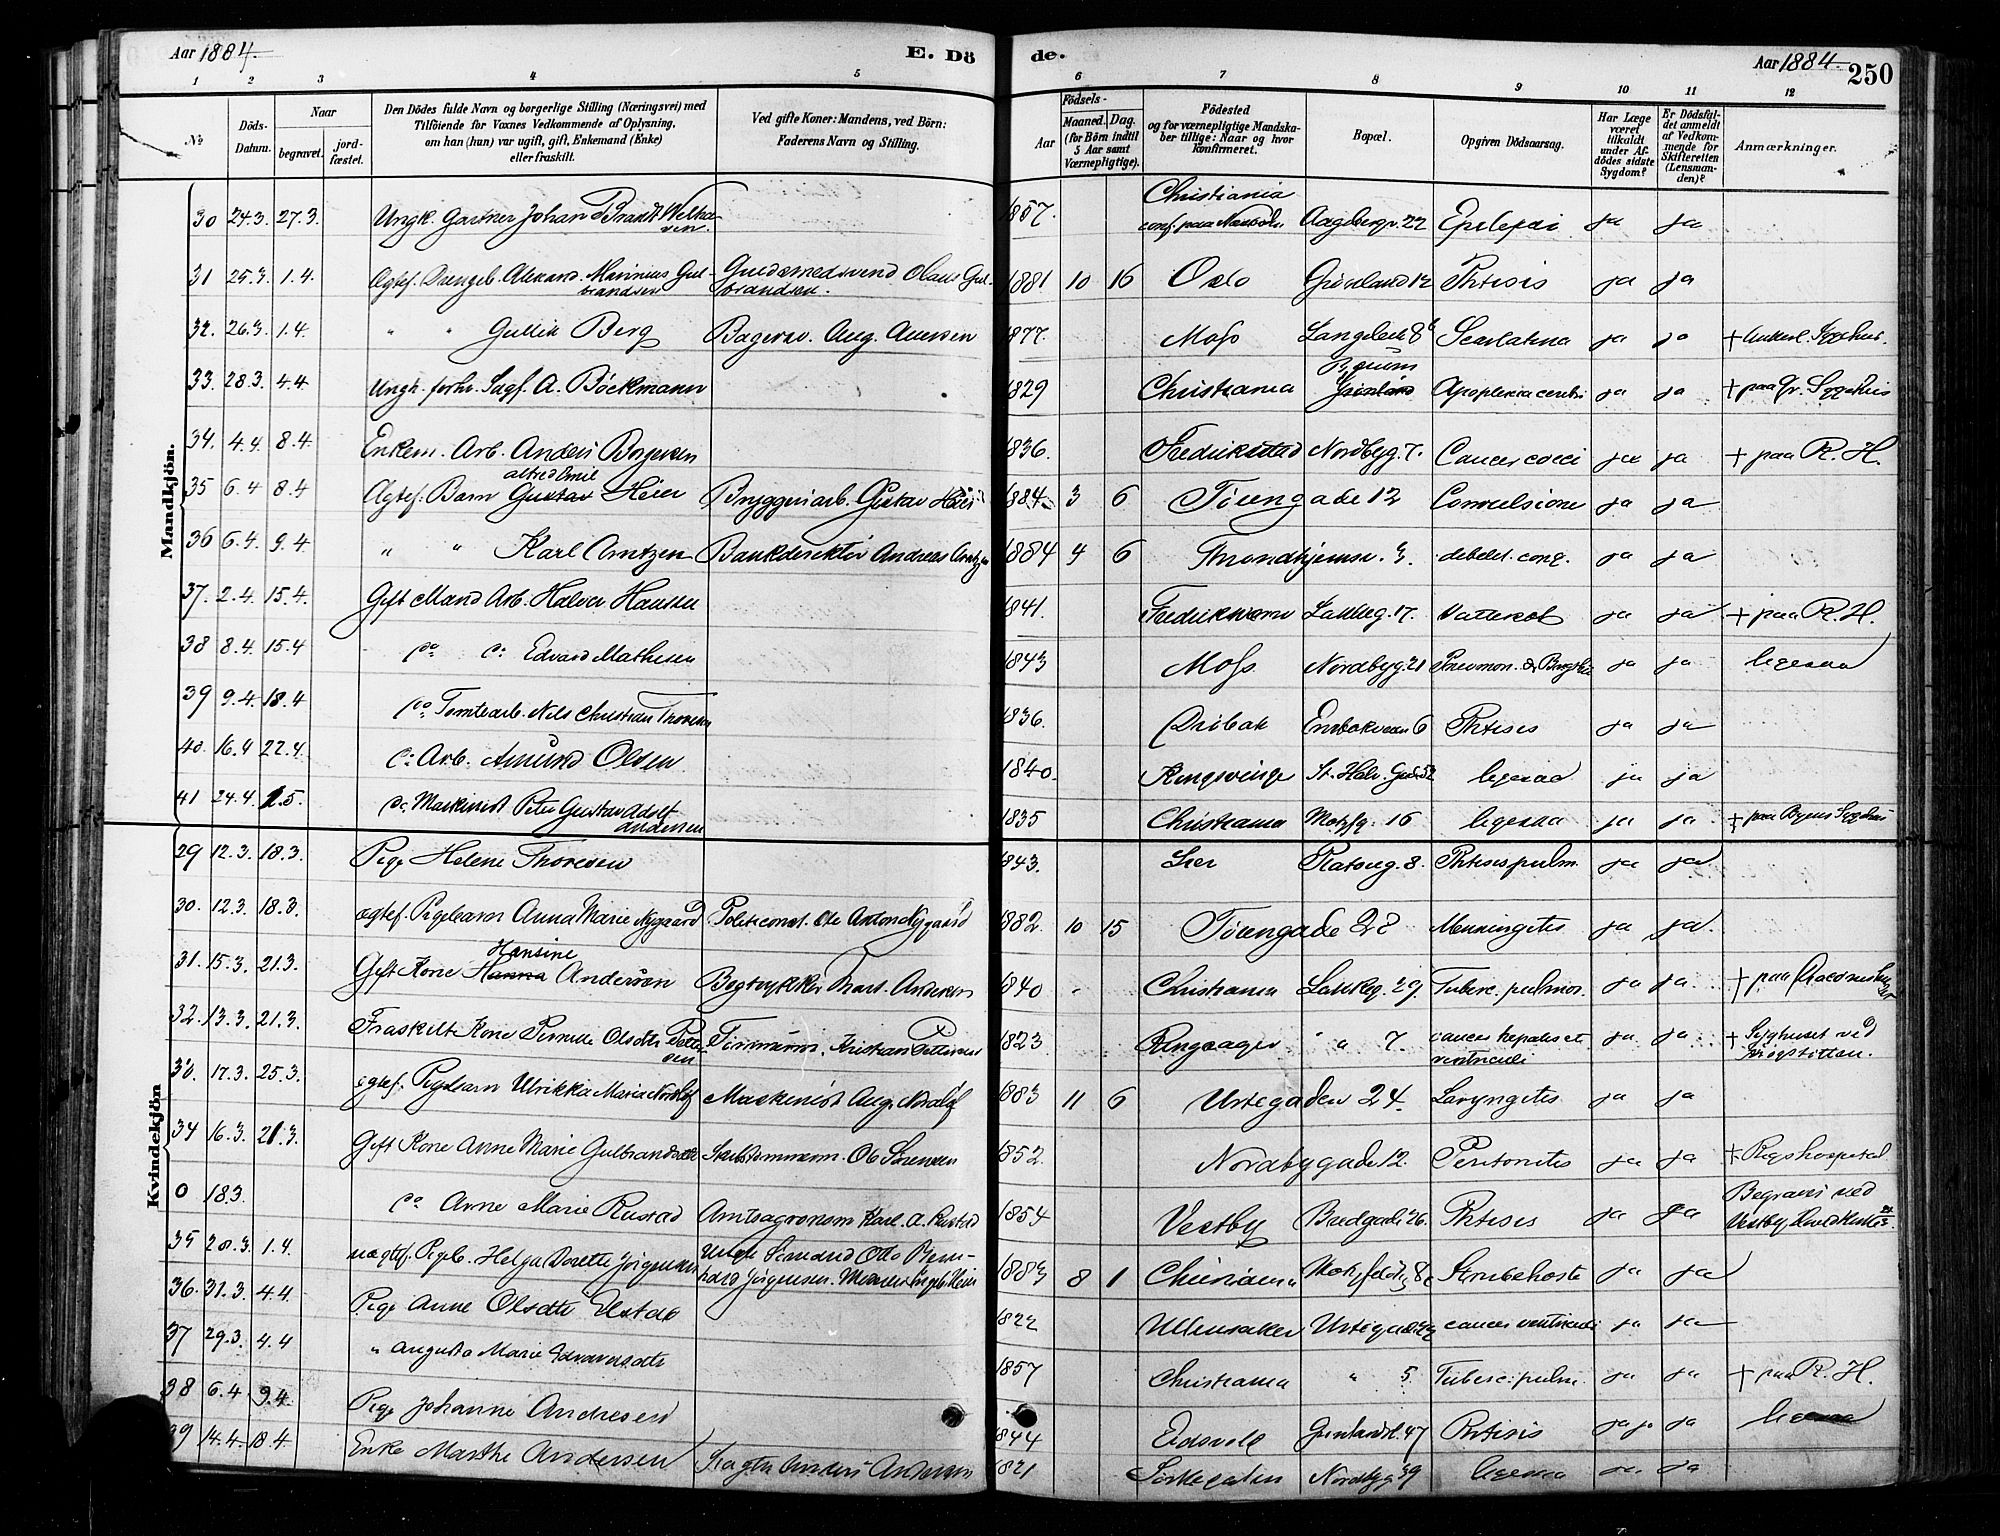 Aar 1884.
E. Dö
de.
Aar 1884.
250
1 2 3 4 5 6 7 8 9 10 11 12
No
Döds-Datum.
Naar
begravet.
jord-fæstet.
Den Dödes fulde Navn og borgerlige Stilling (Næringsvei) med
Tilföiende for Voxnes Vedkommende af Oplysning,
om han (hun) var ugift, gift, Enkemand (Enke)
eller fraskilt.
Ved gifte Koner: Mandens, ved Börn:
Faderens Navn og Stilling.
Födsels-
Aar
Maaned. Dag.
(for Börn indtil
5 Aar samt
Værnepligtige).
Födested
og for værnepligtige Mandska-
ber tillige: Naar og hvor
konfirmeret.
Bopæl.
Opgiven Dödsaarsag.
Har Læge
været
tilkaldt
under Af-
dödes sidste
Sygdom?
Er Dödsfal-
det anmeldt
af Vedkom-
mende for
Skifteretten
(Lensman-
den)?
Anmærkninger.
Mandkjön.
30 24.3. 27.3. Ungk. Gartner Johan Brandt 1857. Christiania 22 Epilepsi ja ja
31 25.3. 1.4. Ægtef. Drengeb. Alexand. Marinius Gulbrandsen Guldsmedsvend Olaus Gulbrandsen. 1881 10 16 Oslo Grönland 12 Phtisis ja ja
32. 26.3. 1.4 " " Gullik Berg Aug. 1877. Moss Scarlatina ja ja
33. 28.3. 4.4. Ungk. A. Böckmann 1829 Christiania Grönland Apoplexia cerebri ja ja + paa Gr. Sygehus
34. 4.4. 8.4. Enkem. Arb. Anders 1836. Fredrikstad Nordbyg. 7. Cancer ja ja + paa R. H.
35 6.4 8.4 Ægtef. Barn Alfred Emil Gustav Heier Bryggeriarb. Gustav Heier 1884 3 6 Töiengade 12 Convulsione ja ja
36 6.4. 9.4. " " Karl Arntzen Bankdirektör Andreas Arntzen 1884 4 6 Throndhjemsv. 3. debilit. cong. ja ja
37. 2.4. 15.4. Gift Mand Arb. Halvor Hansen 1841. Lakkeg. 17. Vattersot ja ja + paa R. H.
38 8.4. 15.4 do do Edvard Mathisen 1843 Moss Nordbyg. 21 ja ja ligesaa
39 9.4. 18.4 do Tomtearb. Nils Christian Thoresen 1836. Dröbak 6 Phtisis ja ja
40. 16.4 22.4. do Arb. Amund Olsen 1840. Kongsvinger St. Halv. Gd. 52 ligesaa ja ja
41 24.4. 1.5. do Maskinist Peter Gustav Adolf Andersen 1835 Christiania Motzfg. 16 ligesaa ja ja + paa Byens Sygehus
Kvindekjön
29 12.3. 18.3. Pige Helene Thoresen 1843. Lier Platoug. 8. Phtisis pulm. ja ja
30. 12.3. 18.3. ægtef. Pigebarn Anna Marie Nygaard Politiconst. Ole Anton Nygaard 1882. 10 15 Töiengade 28 Meningites ja ja.
31. 15.3. 21.3. Gift Kone Hansine Hanna Anderson Bogtrykker 1840 Christiania Lakkeg. 29. Tuberc. pulmon. ja ja.
32. 13.3. 21.3. Fraskilt Kone Pernille Olsdtr Pettersen Tömmerm. Kristian Pettersen 1823. Ringsager " 7. cancer hepatis et ventriculi ja ja + Syghuset ved
33. 17.3. 25.3. ægtef. Pigebarn Ulrikka Maria Maskinist Aug. 1883 11 6 Urtegaden 24. Laryngites ja ja
34 16.3. 21.3. Gift Kone Anne Marie Ol. Sörensen 1852. Nordbygade 12. Peritonites ja ja + Rigshospital
0 18.3. do Anne Marie Rustad Amtsagronom Karl. A. Rustad 1854 Vestby Bredgade 26. Phtisis ja ja Begraves ved Vestby
35 28.3. 1.4. uægtef. Pigeb. Helga Dorette Jörgensen Ungk. Smed Otto Bernhard Jörgensen. 1883 8 1 Christiania Strubehoste ja ja
36. 31.3. 4.4. Pige Anne Olsdtr 1822 Ullensaker cancer ventriculi ja ja
37 29.3. 4.4 " Augusta Marie Edvardsdtr 1857 Christiania " 5. Tuberc. pulm. ja ja + paa R. H.
38 6.4 9.4. Pige Johanne Andresen 1844 Eidsvold Grönlandsl. 47 Phtisis ja ja ligesaa
39 14.4. 18.4 Enke Marthe Andersen Anders Andersen 1821 Nordbyg 39 ligesaa ja ja